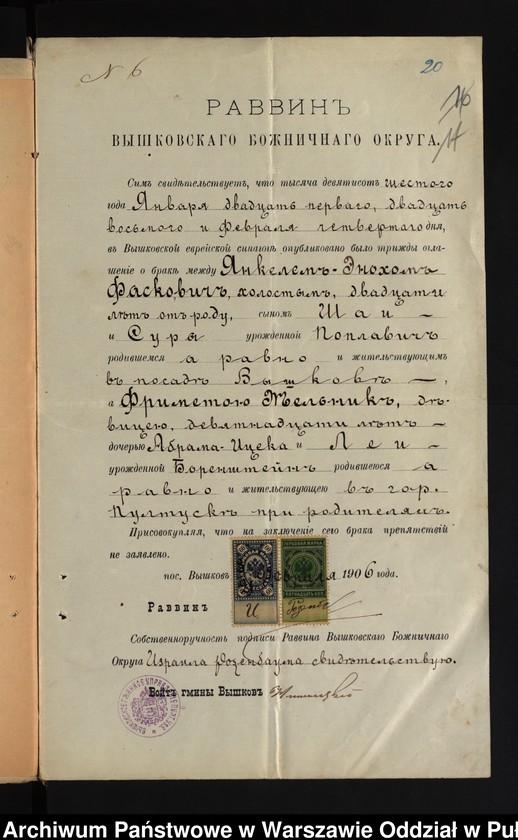 N 6
20
16
14
РАВВИНЪ
ВЫШКОВСКАГО БОЖНИЧНАГО ОКРУГА.
Симъ свидѣтельствуетъ, что тысяча девятисотъ шестого
года Января двадцать перваго, двадцать
восьмого и Февраля четвертаго дня,
въ Вышковской еврейской синагогѣ опубликовано было трижды огла-
шеніе о бракѣ между Янкелемъ-Энохомъ
Фасковичъ, холостымъ, двадцати
лѣтъ отъ роду, сыномъ Шаи —
и Суры урожденной Поплавичъ
родившемся а равно и жительствующимъ
въ посадѣ Вышковѣ —,
а Фриметою Мѣльникъ, дѣ-
вицею, девятнадцати лѣтъ —
дочерью Абрама-Ицека и Леи —
урожденной Боренштейнъ родившеюся а
равно и жительствующею въ гор.
Пултускѣ при родителяхъ.
Присовокупляя, что на заключеніе сего брака препятствій
не заявлено.
пос. Вышковъ Февраля 1906 года.
Раввинъ
Собственноручность подписи Раввина Вышковскаго Божничнаго
Округа Израиля Розенбаума свидѣтельствую.
Войтъ гмины Вышковъ
Archiwum Państwowe w Warszawie Oddział w Puł